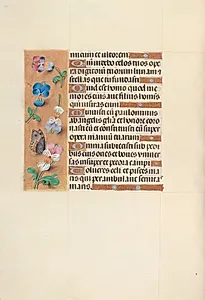 micum et ultorem
Qm videbo celos tuos ope
ra digitorum tuorum lunam et
stellas que tu fundasti
Quid est homo quod me
mor es eius aut filius hominis
qm visitas eum
Minuisti eum paulominus
ab angelis gloria et honore coro
nasti eum et constituisti eum super
opera manuum tuarum
Omnia subiecisti sub pedi
bus eius oues et boues vniuer
sas insuper et pecora campi
Volucres celi et pisces ma
ris qui perambulant semitas
maris